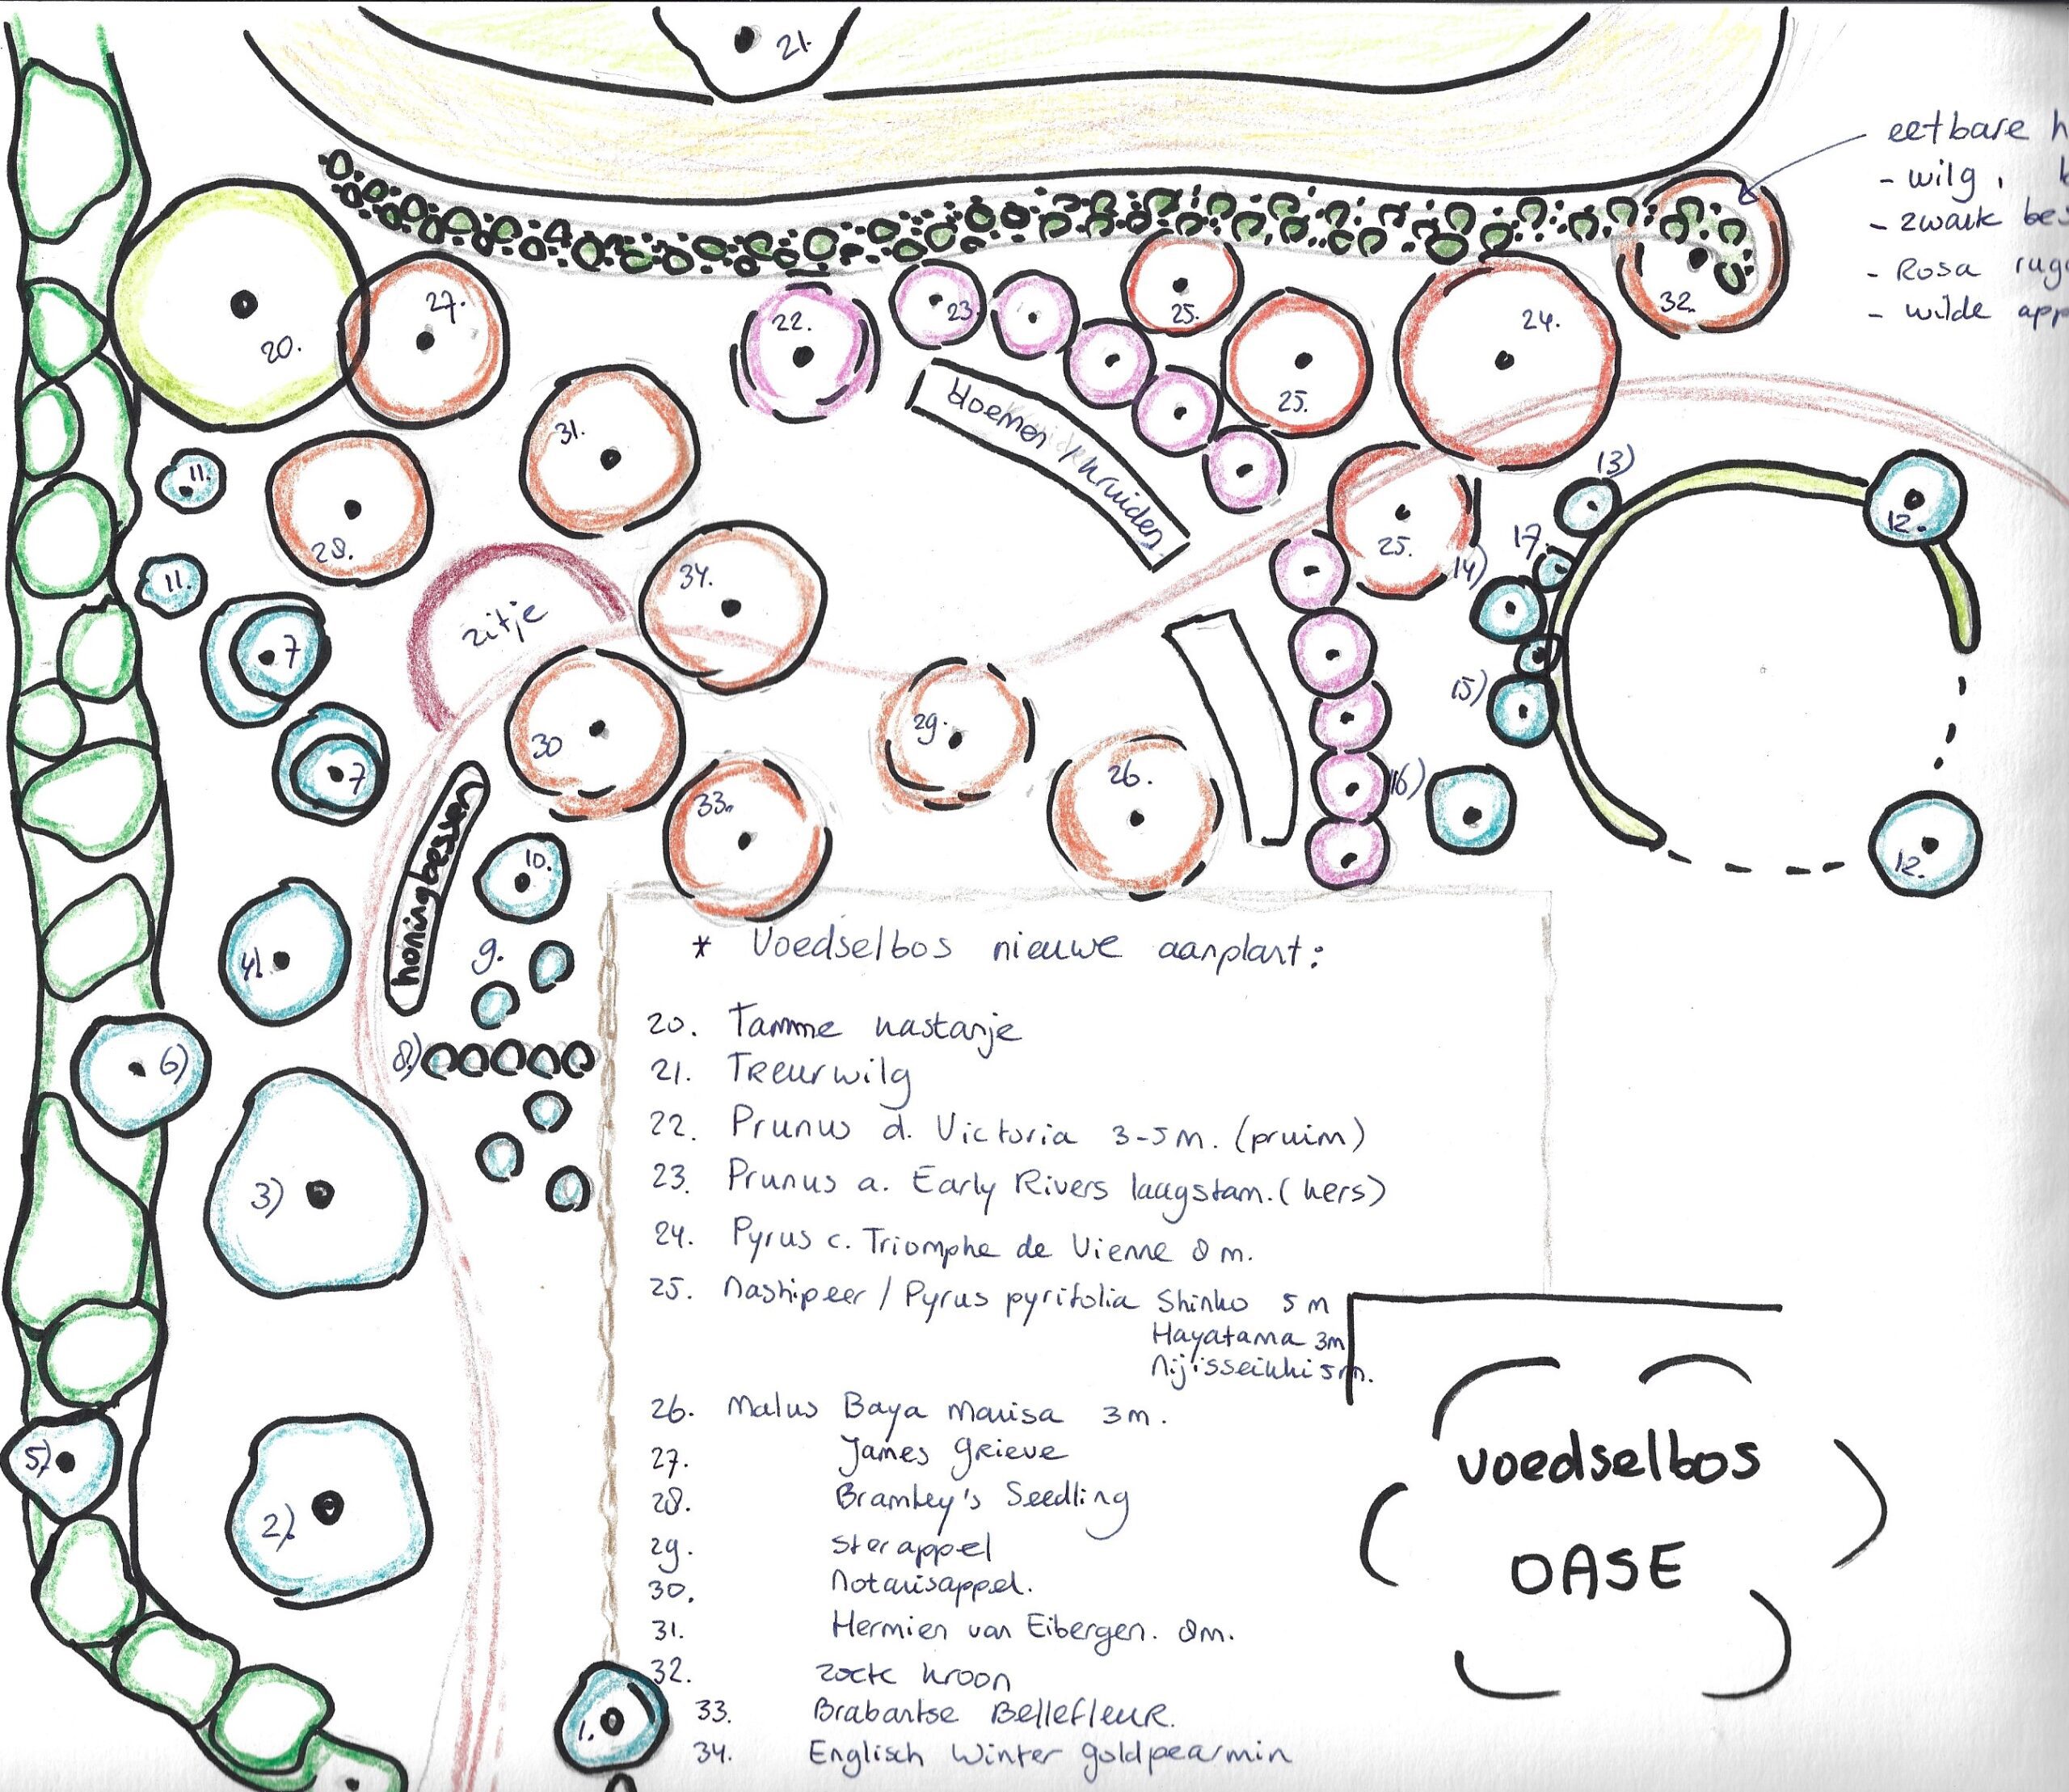 21.
eetbare h
- wilg, k
- zwarte bes
- Rosa rug
- wilde app
20.
27.
22.
23.
25.
24.
32.
31.
25.
bloemen / kruiden.
11.
28.
25.
13)
12.
17.
14)
11.
zitje
34.
7
15)
30
29.
26.
16)
7
33.
12.
honingbessen
10.
4).
9.
6)
8)
3)
5)
2).
1.
* Voedselbos nieuwe aanplant:
20. Tamme kastanje
21. Treurwilg
22. Prunus d. Victoria 3-5m. (pruim)
23. Prunus a. Early Rivers laagstam. (kers)
24. Pyrus c. Triomphe de Vienne 8 m.
25. Nashipeer / Pyrus pyrifolia Shinko 5 m
Hayatama 3m
Nijisseikki 5m.
26. Malus Baya Marisa 3m.
27. James Grieve
28. Bramley's Seedling
29. Sterappel
30. Notarisappel.
31. Hermien van Eibergen. 8m.
32. zoete kroon
33. Brabantse Bellefleur.
34. Englisch Winter goldpearmin
voedselbos
OASE